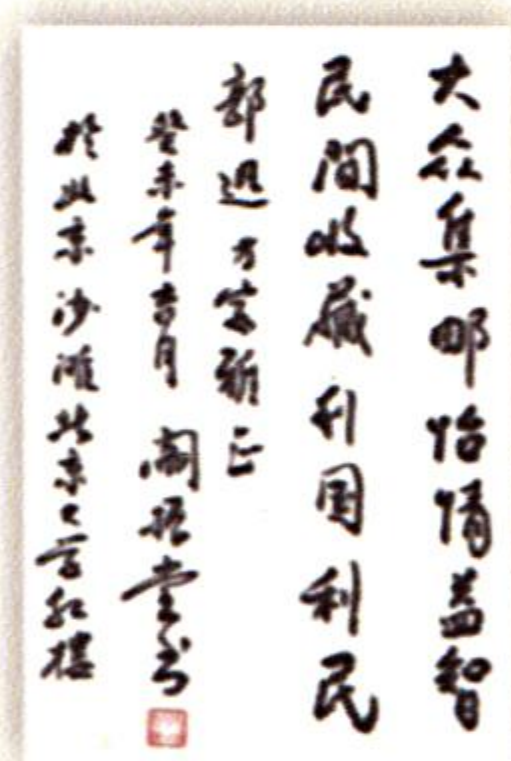 大众集邮怡情益智
民间收藏利国利民
郭迅方家雅正
癸未年吉月 阎振堂书
於北京沙滩北京大学红楼